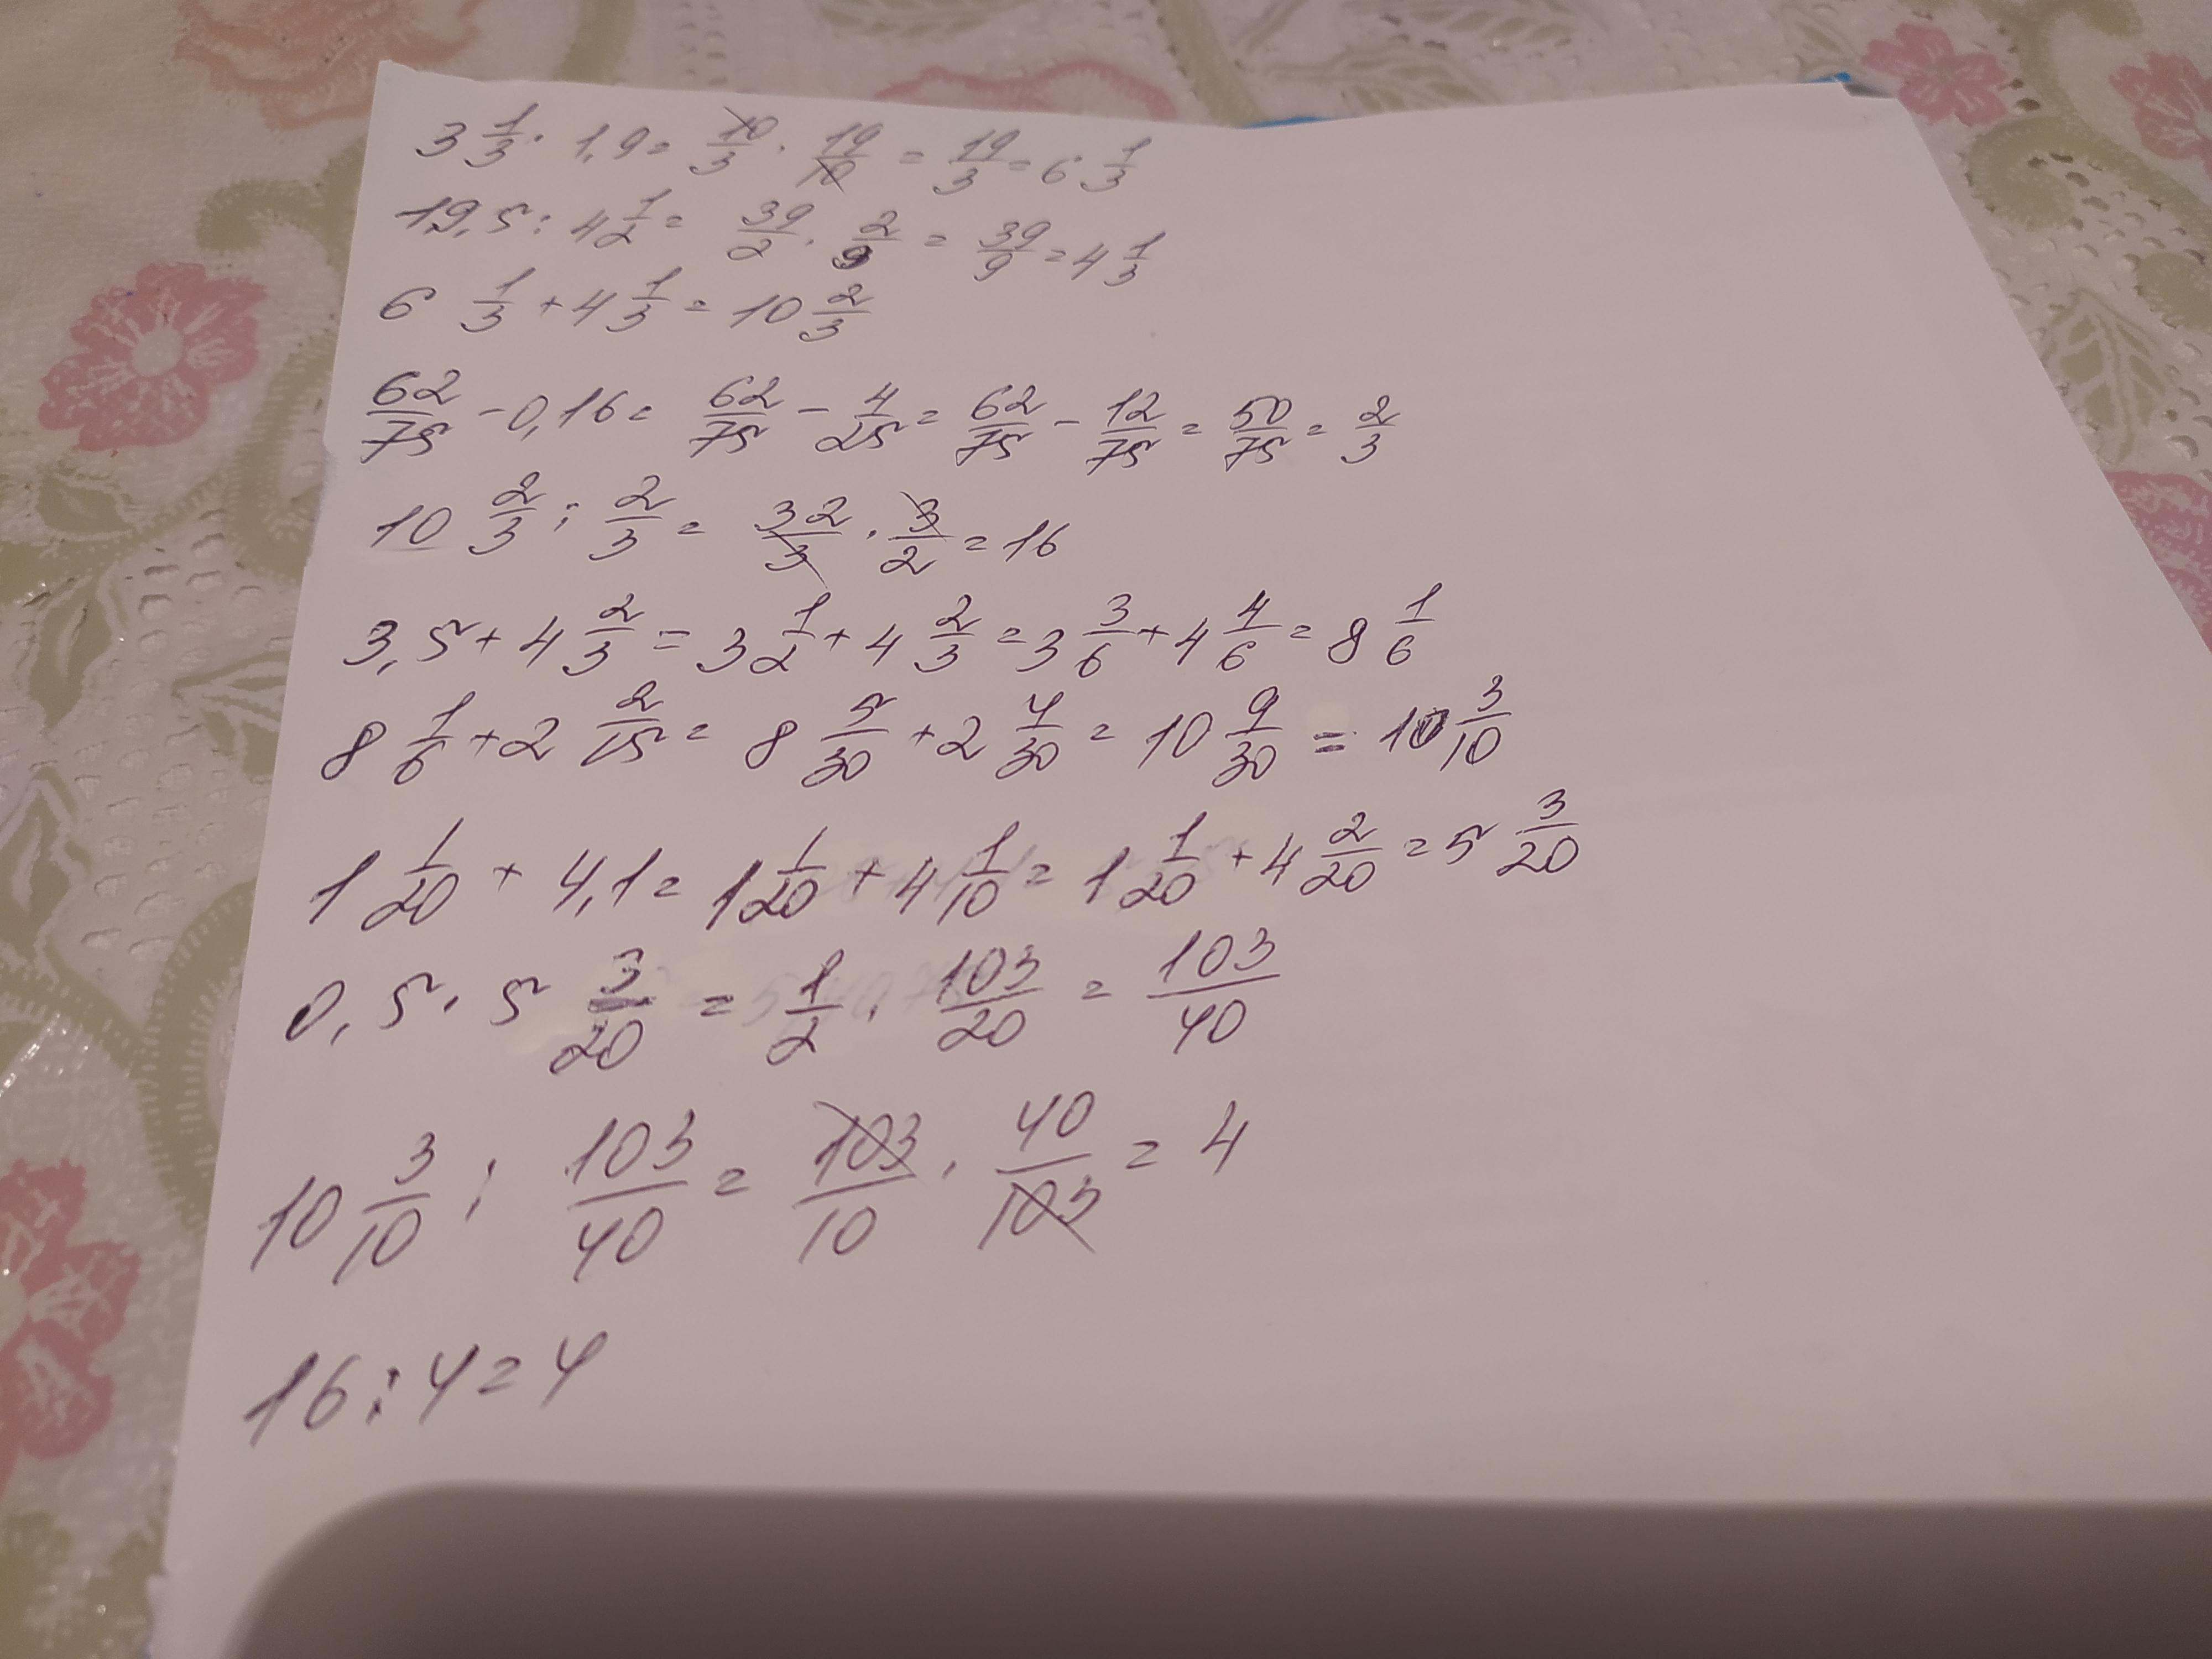 3 1/3 · 1,9 = 10/3 · 19/10 = 19/3 = 6 1/3
19,5 : 4 1/2 = 39/2 · 2/9 = 39/9 = 4 1/3
6 1/3 + 4 1/3 = 10 2/3
62/75 - 0,16 = 62/75 - 4/25 = 62/75 - 12/75 = 50/75 = 2/3
10 2/3 : 2/3 = 32/3 · 3/2 = 16
3,5 + 4 2/3 = 3 1/2 + 4 2/3 = 3 3/6 + 4 4/6 = 8 1/6
8 1/6 + 2 2/15 = 8 5/30 + 2 4/30 = 10 9/30 = 10 3/10
1 1/20 + 4,1 = 1 1/20 + 4 1/10 = 1 1/20 + 4 2/20 = 5 3/20
0,5 · 5 3/20 = 1/2 · 103/20 = 103/40
10 3/10 : 103/40 = 103/10 · 40/103 = 4
16 : 4 = 4